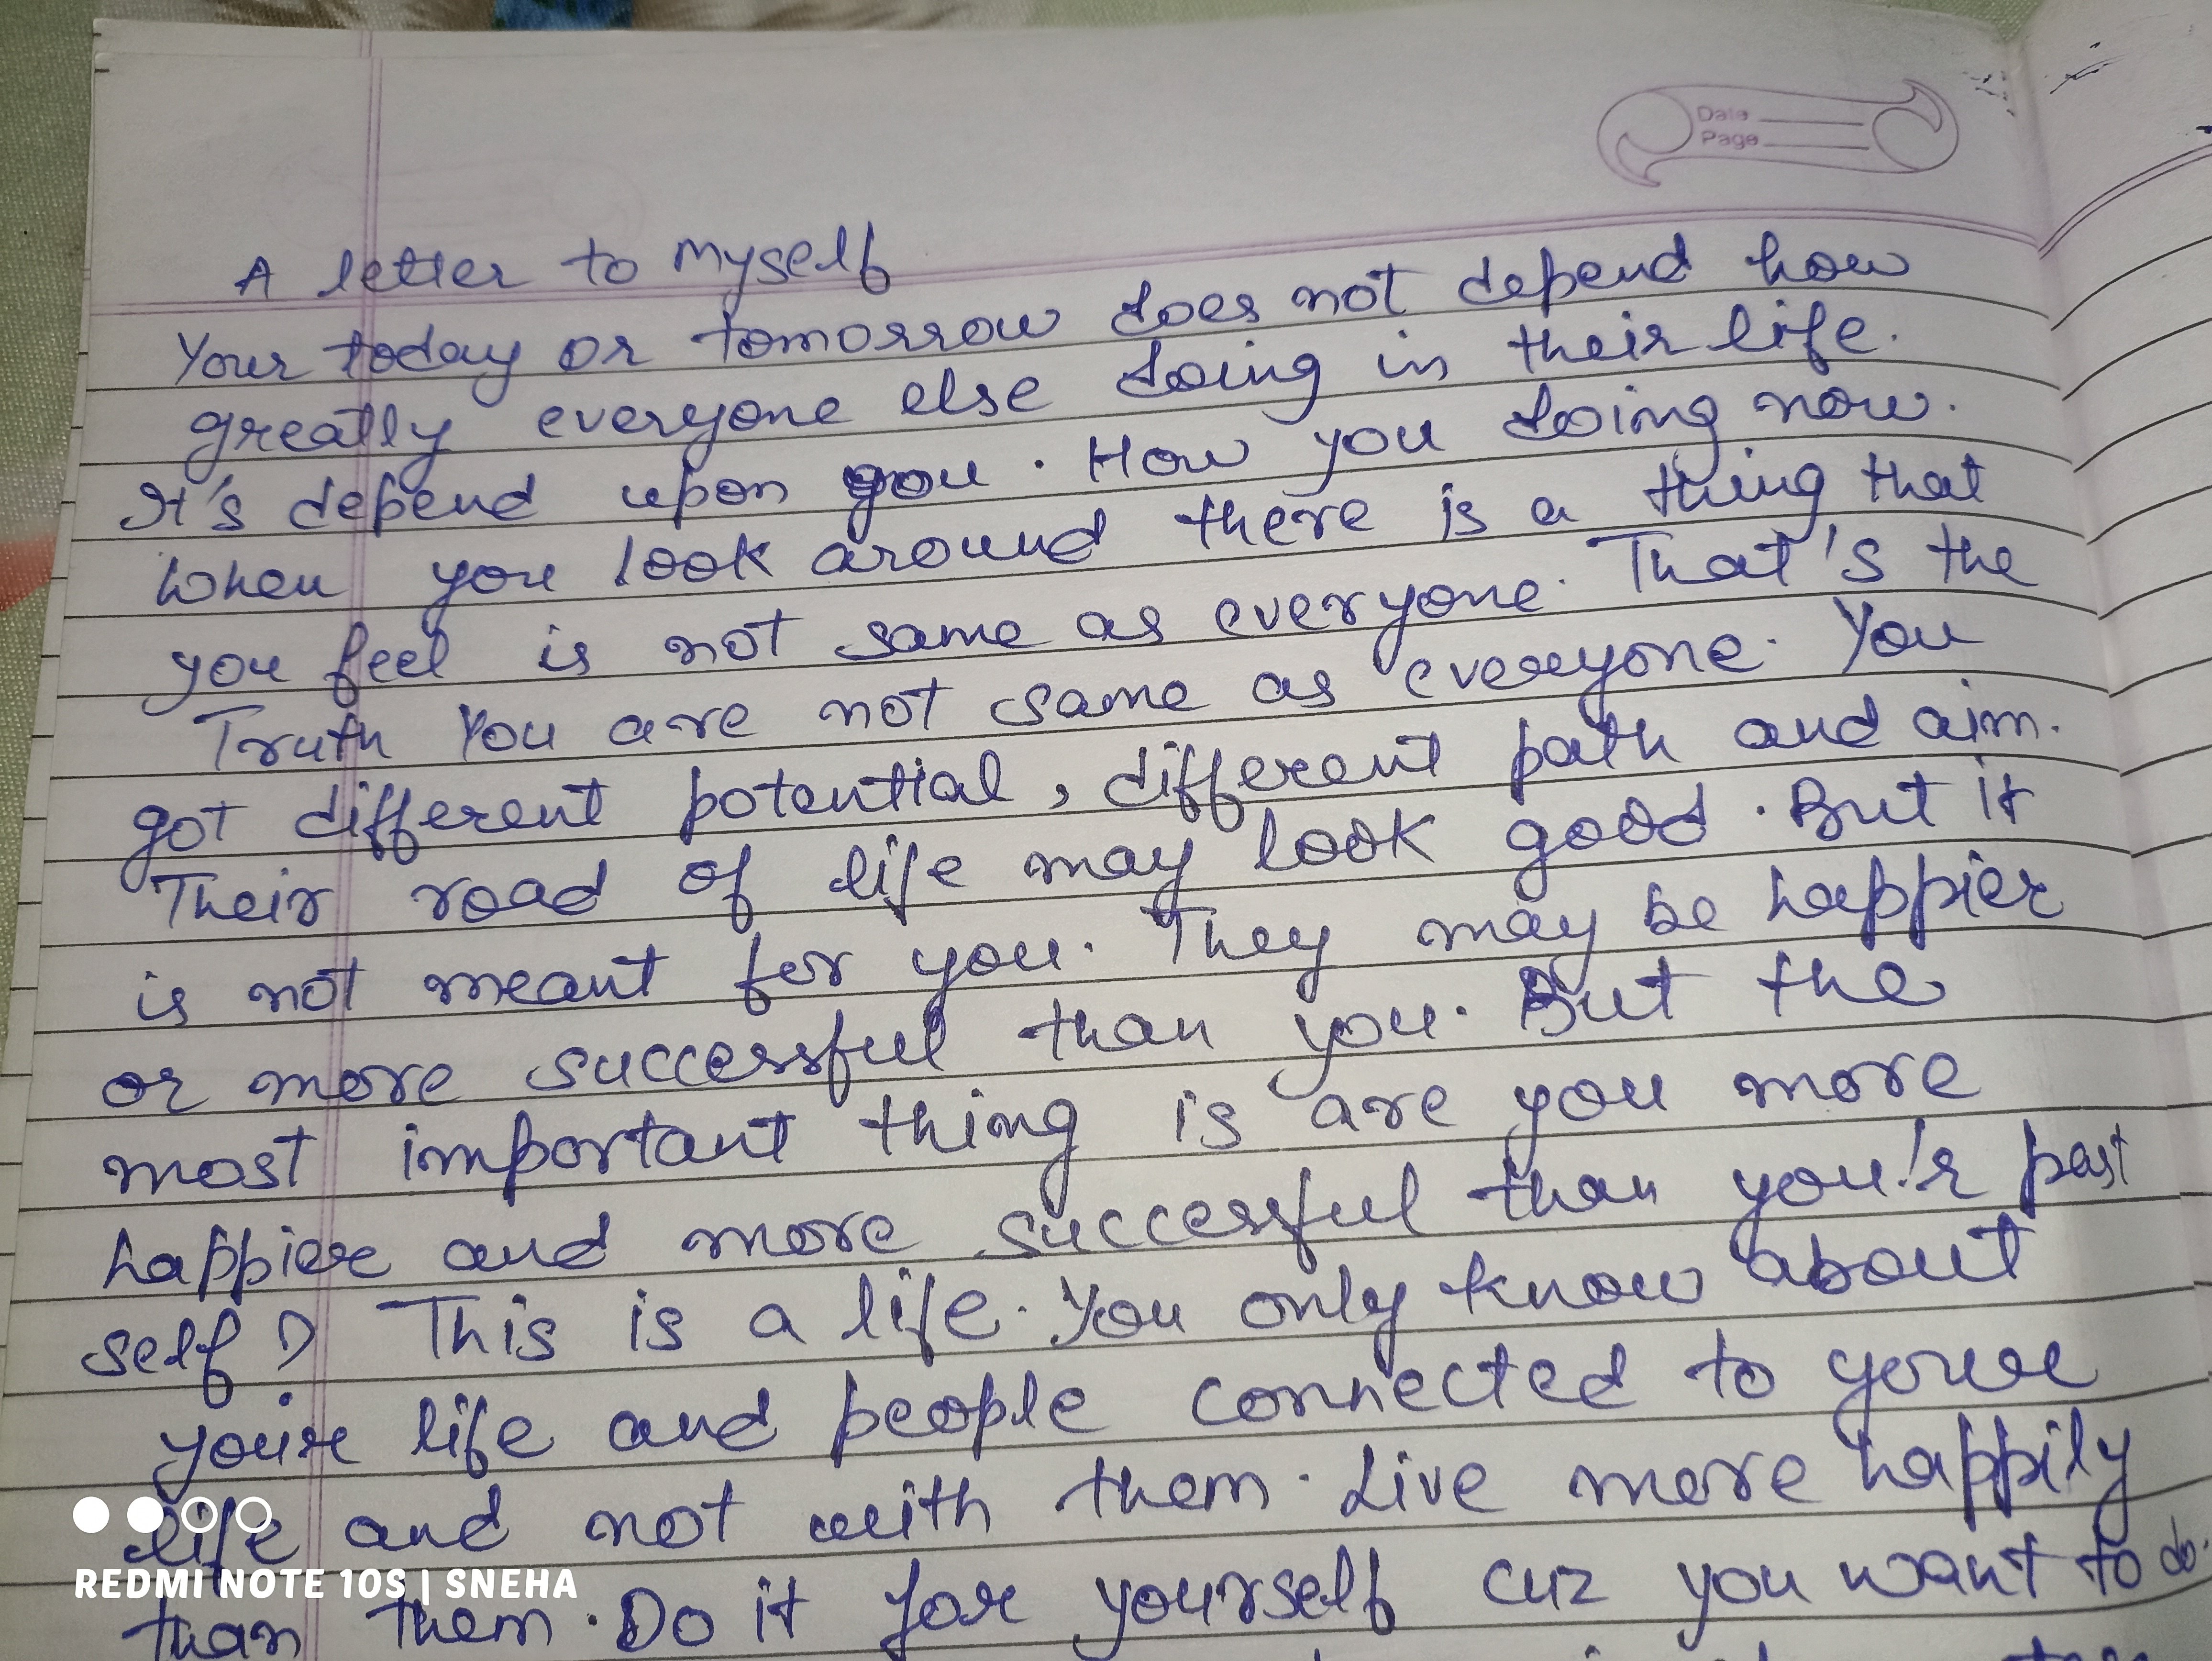 Date
Page
A letter to Myself
Your today or tomorrow does not depend how
greatly everyone else doing in their life.
It's depend upon you. How you doing now.
When you look around there is a thing that
you feel is not same as everyone. That's the
Truth You are not same as everyone. You
got different potential, different path and aim.
Their road of life may look good. But it
is not meant for you. They may be happier
or more successful than you. But the
most important thing is are you more
happier and more successful than you'r past
self? This is a life. You only know about
your life and people connected to your
life and not with them. Live more happily
than them. Do it for yourself cuz you want to do.
REDMI NOTE 10S | SNEHA